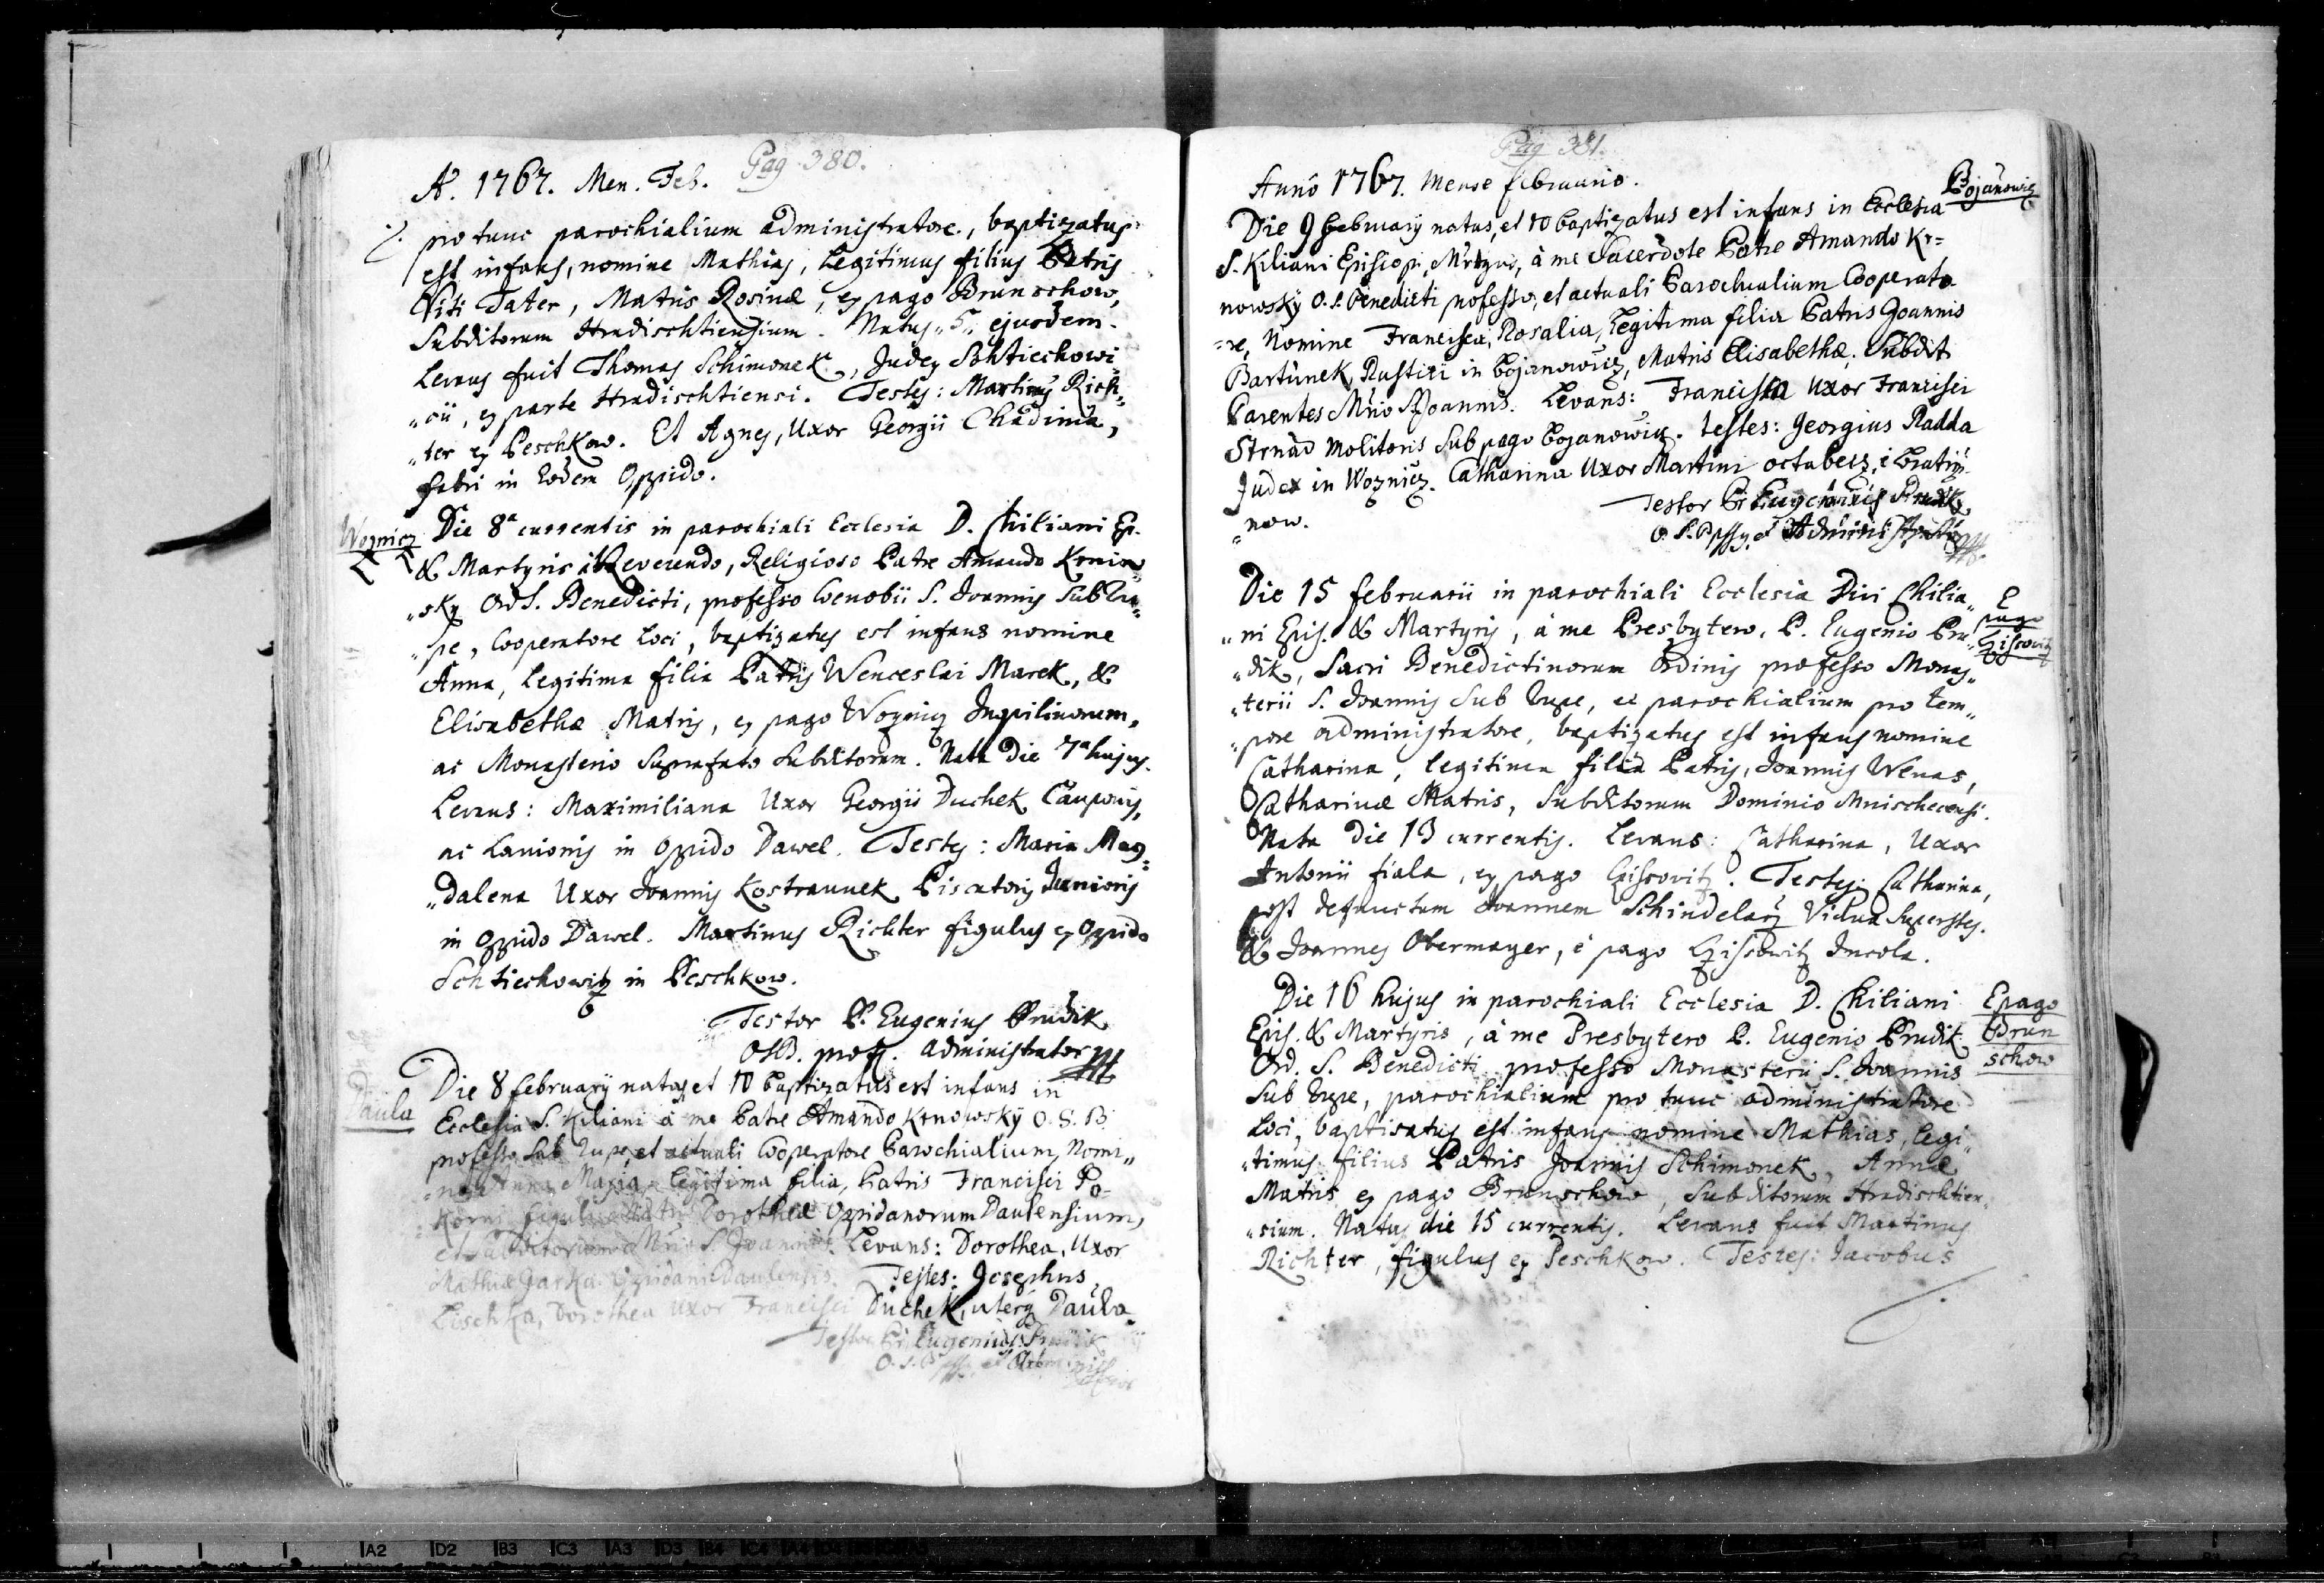 Pag 380.
A. 1767. Men. Feb.
%. pro tunc parochialium administratore, baptizatus
est infans, nomine Mathias, Legitimus filius Patris
Viti Tater, Matris Rosinæ, ex pago Brunschow,
Subditorum Hradischtiensium. Natus „5„ ejusdem.
Levans fuit Thomas Schimonek, Judex Schtiechowi„
„cii, ex parte Hradischtiensi. Testes: Martinus Rich„
„ter ex Peschkow. Et Agnes, Uxor Georgii Chadima,
fabri in Eodem Oppido.
Woznicz
Die 8ª currentis in parochiali Ecclesia D. Chiliani Ep.
& Martyris à Reverendo, Religioso Patre Amando Krnow„
„sky Ord S. Benedicti, professo Coenobii S. Joannis Sub Ru„
„pe, Cooperatore Loci, baptizatus est infans nomine
Anna, Legitima filia Patris Wenceslai Marek, &
Elisabethæ Matris, ex pago Woznicz Inquilinorum,
ac Monasterio Suprafato Subditorum. Nata Die 7ª hujus.
Levans: Maximiliana Uxor Georgii Duchek Cauponis,
ac Lanionis in Oppido Dawel. Testes: Maria Mag„
„dalena Uxor Joannis Kostraunek Piscatoris Junioris
in Oppido Dawel. Martinus Richter figulus ex Oppido
Schtiechowitz in Peschkow.
Testor P. Eugenius Prudik
OSB. profs. administrator
Daula
Die 8 february natus et 10 baptizatus est infans in
Ecclesia S. Kiliani à me Patre Amando Krnowsky O. S. B.
professo Sub Rupe, et actuali Cooperatore Parochialium, Nomi„
„ne Anna Maria, legitima filia, Patris Francisci Po-
korni figuli Matris Dorotheæ Oppidanorum Daulensium,
et Subditorum Mrio S. Joannis. Levans: Dorothea, Uxor
Mathiæ Jarka Oppidani Daulensis. Testes: Josephus
Lischka, Dorothea Uxor Francisci Duchek, uterq Daula.
Testor P. Eugenius Prudik
O. S. B. pffs. et Administrator
Pag 381.
Anno 1767. Mense februario.
Bojanowicz
Die 9 february natus, et 10 baptizatus est infans in Ecclesia
S. Kiliani Episcopi, Mrtyris, à me Sacerdote Patre Amando Kr=
nowský O. S. Benedicti professo, et actuali Parochialium Cooperato
=re, Nomine Francisca, Rosalia, Legitima filia Patris Joannis
Bartunek, Rustici in Bojanowicz, Matris Elisabethæ. Subdit
Parentes Mrio S Joannis. Levans: Francisca Uxor Francisci
Strnad Molitoris Sub pago Bojanowicz. Testes: Georgius Radda
Judex in Woznicz. Catharina Uxor Martini octabecz, è Bratrzi
„now.
Testor P. Eugenius Prudik
O. S. B pffs. et Administrator
E
pago
Czisowitz
Die 15 februarii in parochiali Ecclesia Divi Chilia„
„ni Epis. & Martyris, à me Presbytero, P. Eugenio Pru„
„dik, Sacri Benedictinorum Ordinis professo Monas„
„terii S. Joannis Sub Rupe, et parochialium pro tem„
„pore administratore, baptizatus est infans nomine
Catharina, legitima filia Patris, Joannis Wenas,
Catharinæ Matris, Subditorum Dominio Mnischecensi.
Nata Die 13 currentis. Levans: Catharina, Uxor
Antonii fiala, ex pago Czisowitz. Testes: Catharina,
post defunctum Joannem Schindelarz Vidua Superstes.
& Joannes Obermayer, è pago Czisowitz Incola.
E pago
Brun
schow
Die 16 hujus in parochiali Ecclesia D. Chiliani
Epis. & Martyris, à me Presbytero P. Eugenio Prudik
Ord. S. Benedicti professo Monasterii S. Joannis
Sub Rupe, parochialium pro tunc administratore
Loci, baptisatus est infans nomine Mathias, legi„
„timus filius Patris Joannis Schimonek, Annæ
Matris ex pago Brunschow, Subditorum Hradischtien„
„sium. Natus die 15 currentis. Levans fuit Martinus
Richter, figulus ex Peschkow. Testes: Jacobus